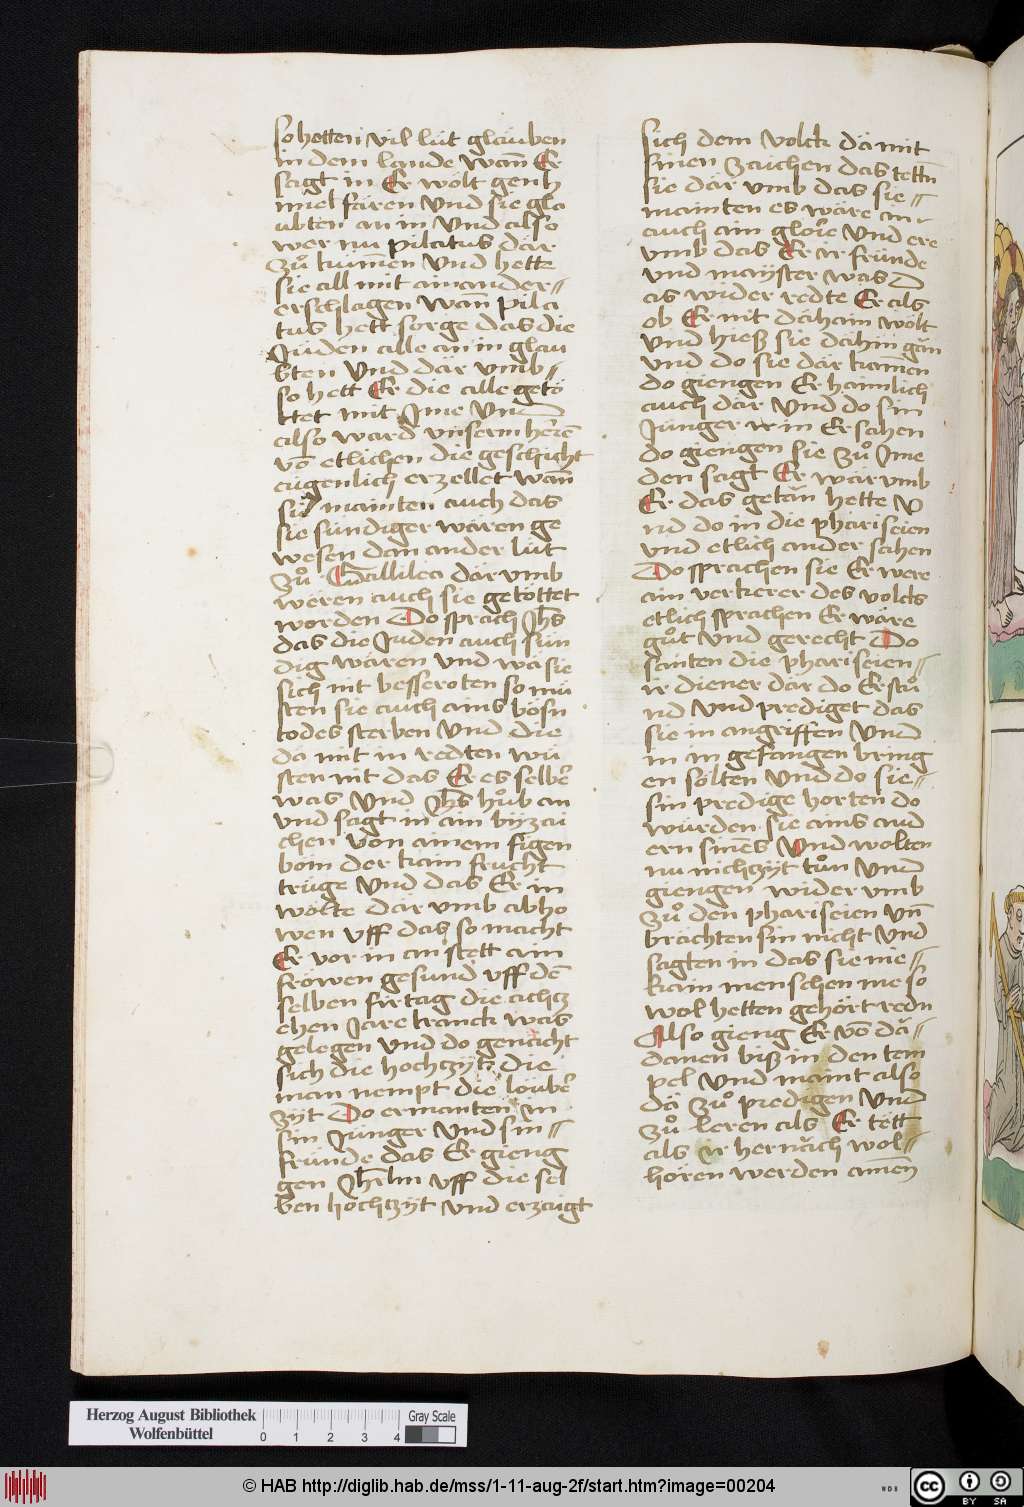 so hetten vil lüt glauben
in dem lande wañ Er
sagt in Er wölt gen h
imiel faren Vnd sie gla
ubten an in Vnd also
wer nu pilatus dar
zů kūmen Vnd hette
sie all mit ainander
erschlagen wañ pila
tus hett sorge das die
Jüden alle an in glau
bten Vnd dar vmb
so hett Er die alle getö
ttet mit Jme Vnd
also ward vnserm herrē
võ etlichen die geschicht
eügenlich erzellet wañ
sie mainten auch das
sie sündiger waren ge
wesen dan ander lüt
zů Gallilea dar vmb
weren auch sie getöttet
worden Do sprach Jhs
das die Juden auch sün
dig waren vnd wa sie
sich nit besseroten so mü
sten sie auch ains bösn
todes sterben Vnd die
da mit in redten wu
sten nit das Er es selber
was Vnd Jhs hůb an
vnd sagt in ain byzai
chen von ainem figen
bom der kain frucht
trüge Vnd das Er in
wölte dar vmb abho
wen vff das so macht
Er vor in an stett ain
fröwen gesund vff dē
selben firtag die achtz
ehen Jare kranck was
gelegen vnd do genacht
sich die hochzyt die
man nempt die löuber
zyt Do ermanten in
sin Jünger Vnd sin
fründe das Er gieng
gen Jhrlm vff die sel
ben hochzyt vnd erzaigt
sich dem volck da mit
sinen zaichen das tettñ
sie dar vmb das sie
mainten es wäre in
auch ain glorie Vnd ere
vmb das Er ir fründe
vnd mayster was D
as wider redte Er als
ob Er nit dahain wölt
vnd hieß sie dahin gan
vnd do sie dar kamen
do giengen Er haimlich
auch dar Vnd do sin
Junger in Er sahen
do giengen sie zů Jme
den sagt Er wär vmb
Er das getän hette v
nd do in die phariseien
vnd etlich ander sahen
Do sprachen sie Er were
ain verkerer des volcks
etlich sprachen Er wäre
gůt vnd gerecht Do
santen die phariseien
ir diener dar do Er stů
nd Vnd prediget das
sie in angriffen Vnd
in in gefangen bring
en sölten Vnd do sie
sin predige horten do
würden sie ains and
ern sinēs Vnd wolten
nu nichzyt tůn Vnd
giengen wider vmb
zů den phariseien Vñ
brächten sin nicht Vnd
sagten in das sie nie
kain menschen nie so
wol hetten gehört redn
Also gieng Er võ da
danen biß in den tem
pel Vnd maint also
da zů predigen Vnd
zů leren als Er tett
als ir hernach wol
hören werden amen
Herzog August Bibliothek
Wolfenbüttel
0 1 2 3 4
Gray Scale
© HAB http://diglib.hab.de/mss/1-11-aug-2f/start.htm?image=00204
WDB
cc BY SA